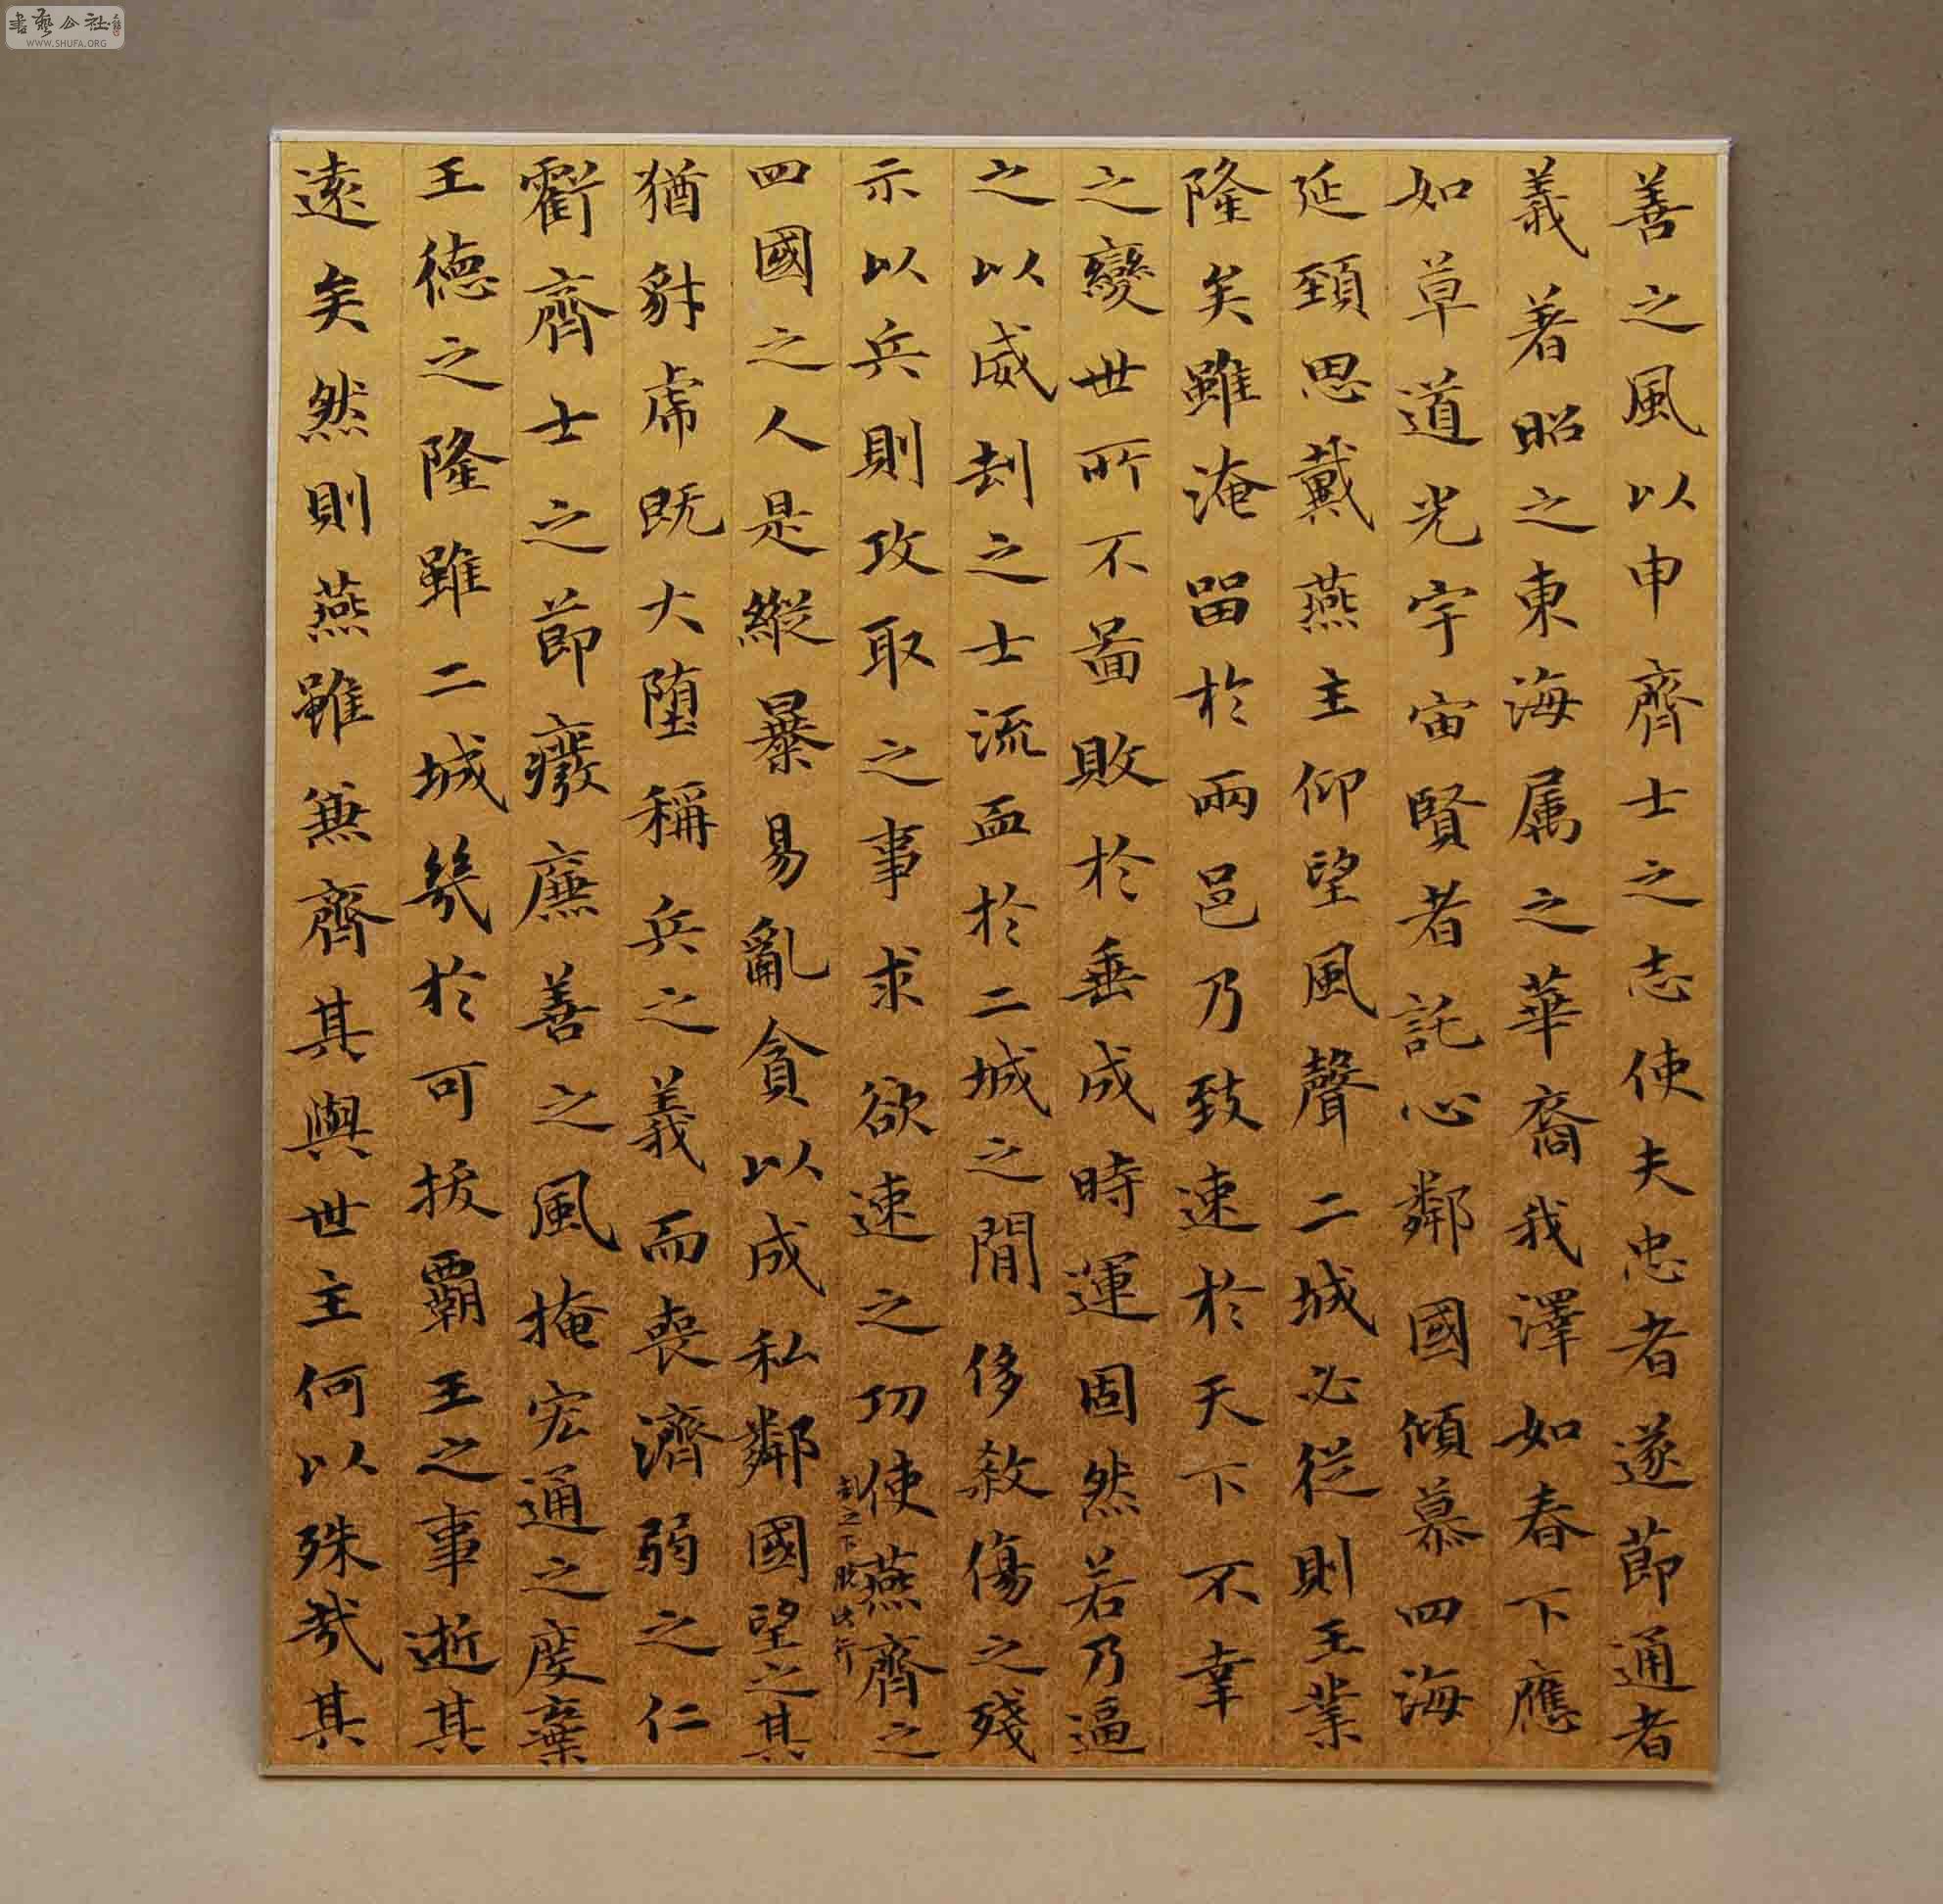 善之風以申齊士之志使夫忠者遂節通者
義著昭之東海属之華裔我澤如春下應
如草道光宇宙賢者託心鄰國傾慕四海
延頸思戴燕主仰望風聲二城必從則王業
隆矣雖淹留於兩邑乃致速於天下不幸
之變世所不啚敗於垂成時運固然若乃逼
之以威刦之士流血於二城之間侈殺傷之殘
示以兵則攻取之事求欲速之功使燕齊之
刦之下脱此行
四國之人是縱暴易亂貪以成私鄰國望之其
猶豺虎既大墮稱兵之義而喪濟弱之仁
虧齊士之節癈廉善之風掩宏通之度棄
王德之隆雖二城幾於可拔覇王之事逝其
遠矣然則燕雖兼齊其與世主何以殊哉其
書藝公社
WWW.SHUFA.ORG